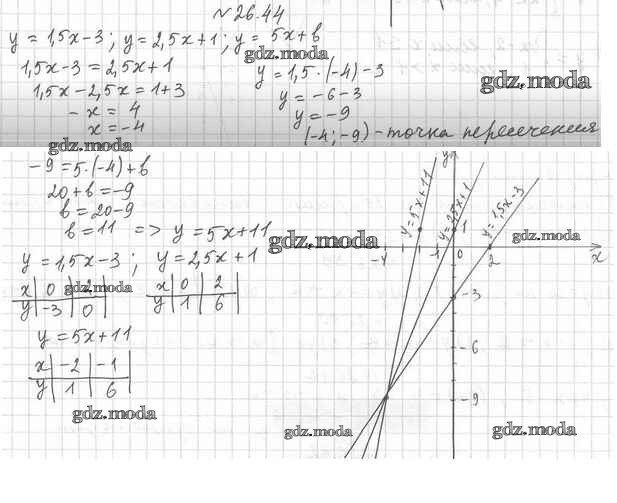 №26.44
y = 1,5x-3 ; y = 2,5x+1 ; y = 5x+b
gdz.moda
1,5x-3 = 2,5x+1
y = 1,5·(-4)-3
gdz.moda
1,5x-2,5x = 1+3
y = -6-3
-x = 4
y = -9
x = -4
(-4;-9) - точка пересечения
gdz.moda
-9 = 5·(-4)+b
20+b = -9
b = 20-9
b = 11 => y = 5x+11
gdz.moda
y = 1,5x-3 ; y = 2,5x+1
gdz.moda
x 0 2
y -3 0
x 0 2
y 1 6
y = 5x+11
x -2 -1
y 1 6
gdz.moda
y
y = 5x+11
y = 2,5x+1
y = 1,5x-3
gdz.moda
1
-4 -1 0 2 x
-3
-6
-9
gdz.moda
gdz.moda